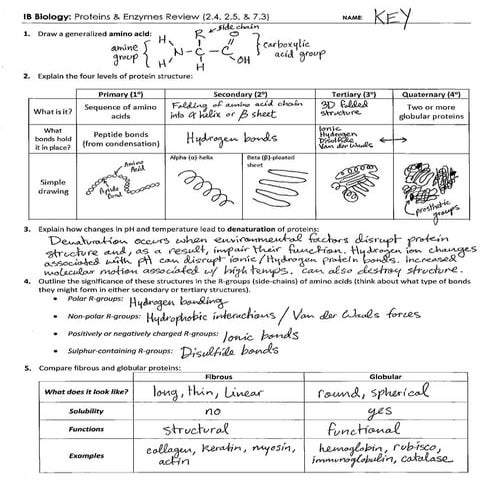 IB Biology: Proteins & Enzymes Review (2.4, 2.5, & 7.3) NAME: KEY
1. Draw a generalized amino acid:
side chain
H R O
amine group { N-C-C } carboxylic acid group
H H OH
2. Explain the four levels of protein structure:
Primary (1°) Secondary (2°) Tertiary (3°) Quaternary (4°)
What is it? Sequence of amino acids Folding of amino acid chain into α helix or β sheet 3D folded structure Two or more globular proteins
What bonds hold it in place? Peptide bonds (from condensation) Hydrogen bonds Ionic Hydrogen Disulfide Van der Waals
Simple drawing Amino Acid Peptide Bond Alpha (α)-helix Beta (β)-pleated sheet prosthetic groups
3. Explain how changes in pH and temperature lead to denaturation of proteins:
Denaturation occurs when environmental factors disrupt protein
structure and, as a result, impair their function. Hydrogen ion changes
associated with pH can disrupt ionic/Hydrogen protein bonds. Increased
molecular motion associated w/ high temps. can also destroy structure.
4. Outline the significance of these structures in the R-groups (side-chains) of amino acids (think about what type of bonds
they might form in either secondary or tertiary structures).
• Polar R-groups: Hydrogen bonding
• Non-polar R-groups: Hydrophobic interactions / Van der Waals forces
• Positively or negatively charged R-groups: Ionic bonds
• Sulphur-containing R-groups: Disulfide bonds
5. Compare fibrous and globular proteins:
Fibrous Globular
What does it look like? long, thin, Linear round, spherical
Solubility no yes
Functions structural functional
Examples collagen, keratin, myosin, actin hemoglobin, rubisco, immunoglobulin, catalase